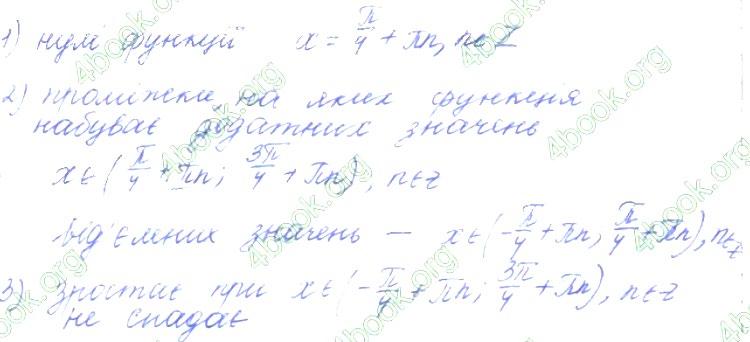 1) нулі функції x = π/4 + πn, n∈Z
2) проміжки, на яких функція
набуває додатних значень
x∈(π/4 + πn; 3π/4 + πn), n∈z
від'ємних значень — x∈(-π/4 + πn, π/4 + πn), n∈z
3) зростає при x∈(-π/4 + πn; 3π/4 + πn), n∈z
не спадає
4book.org